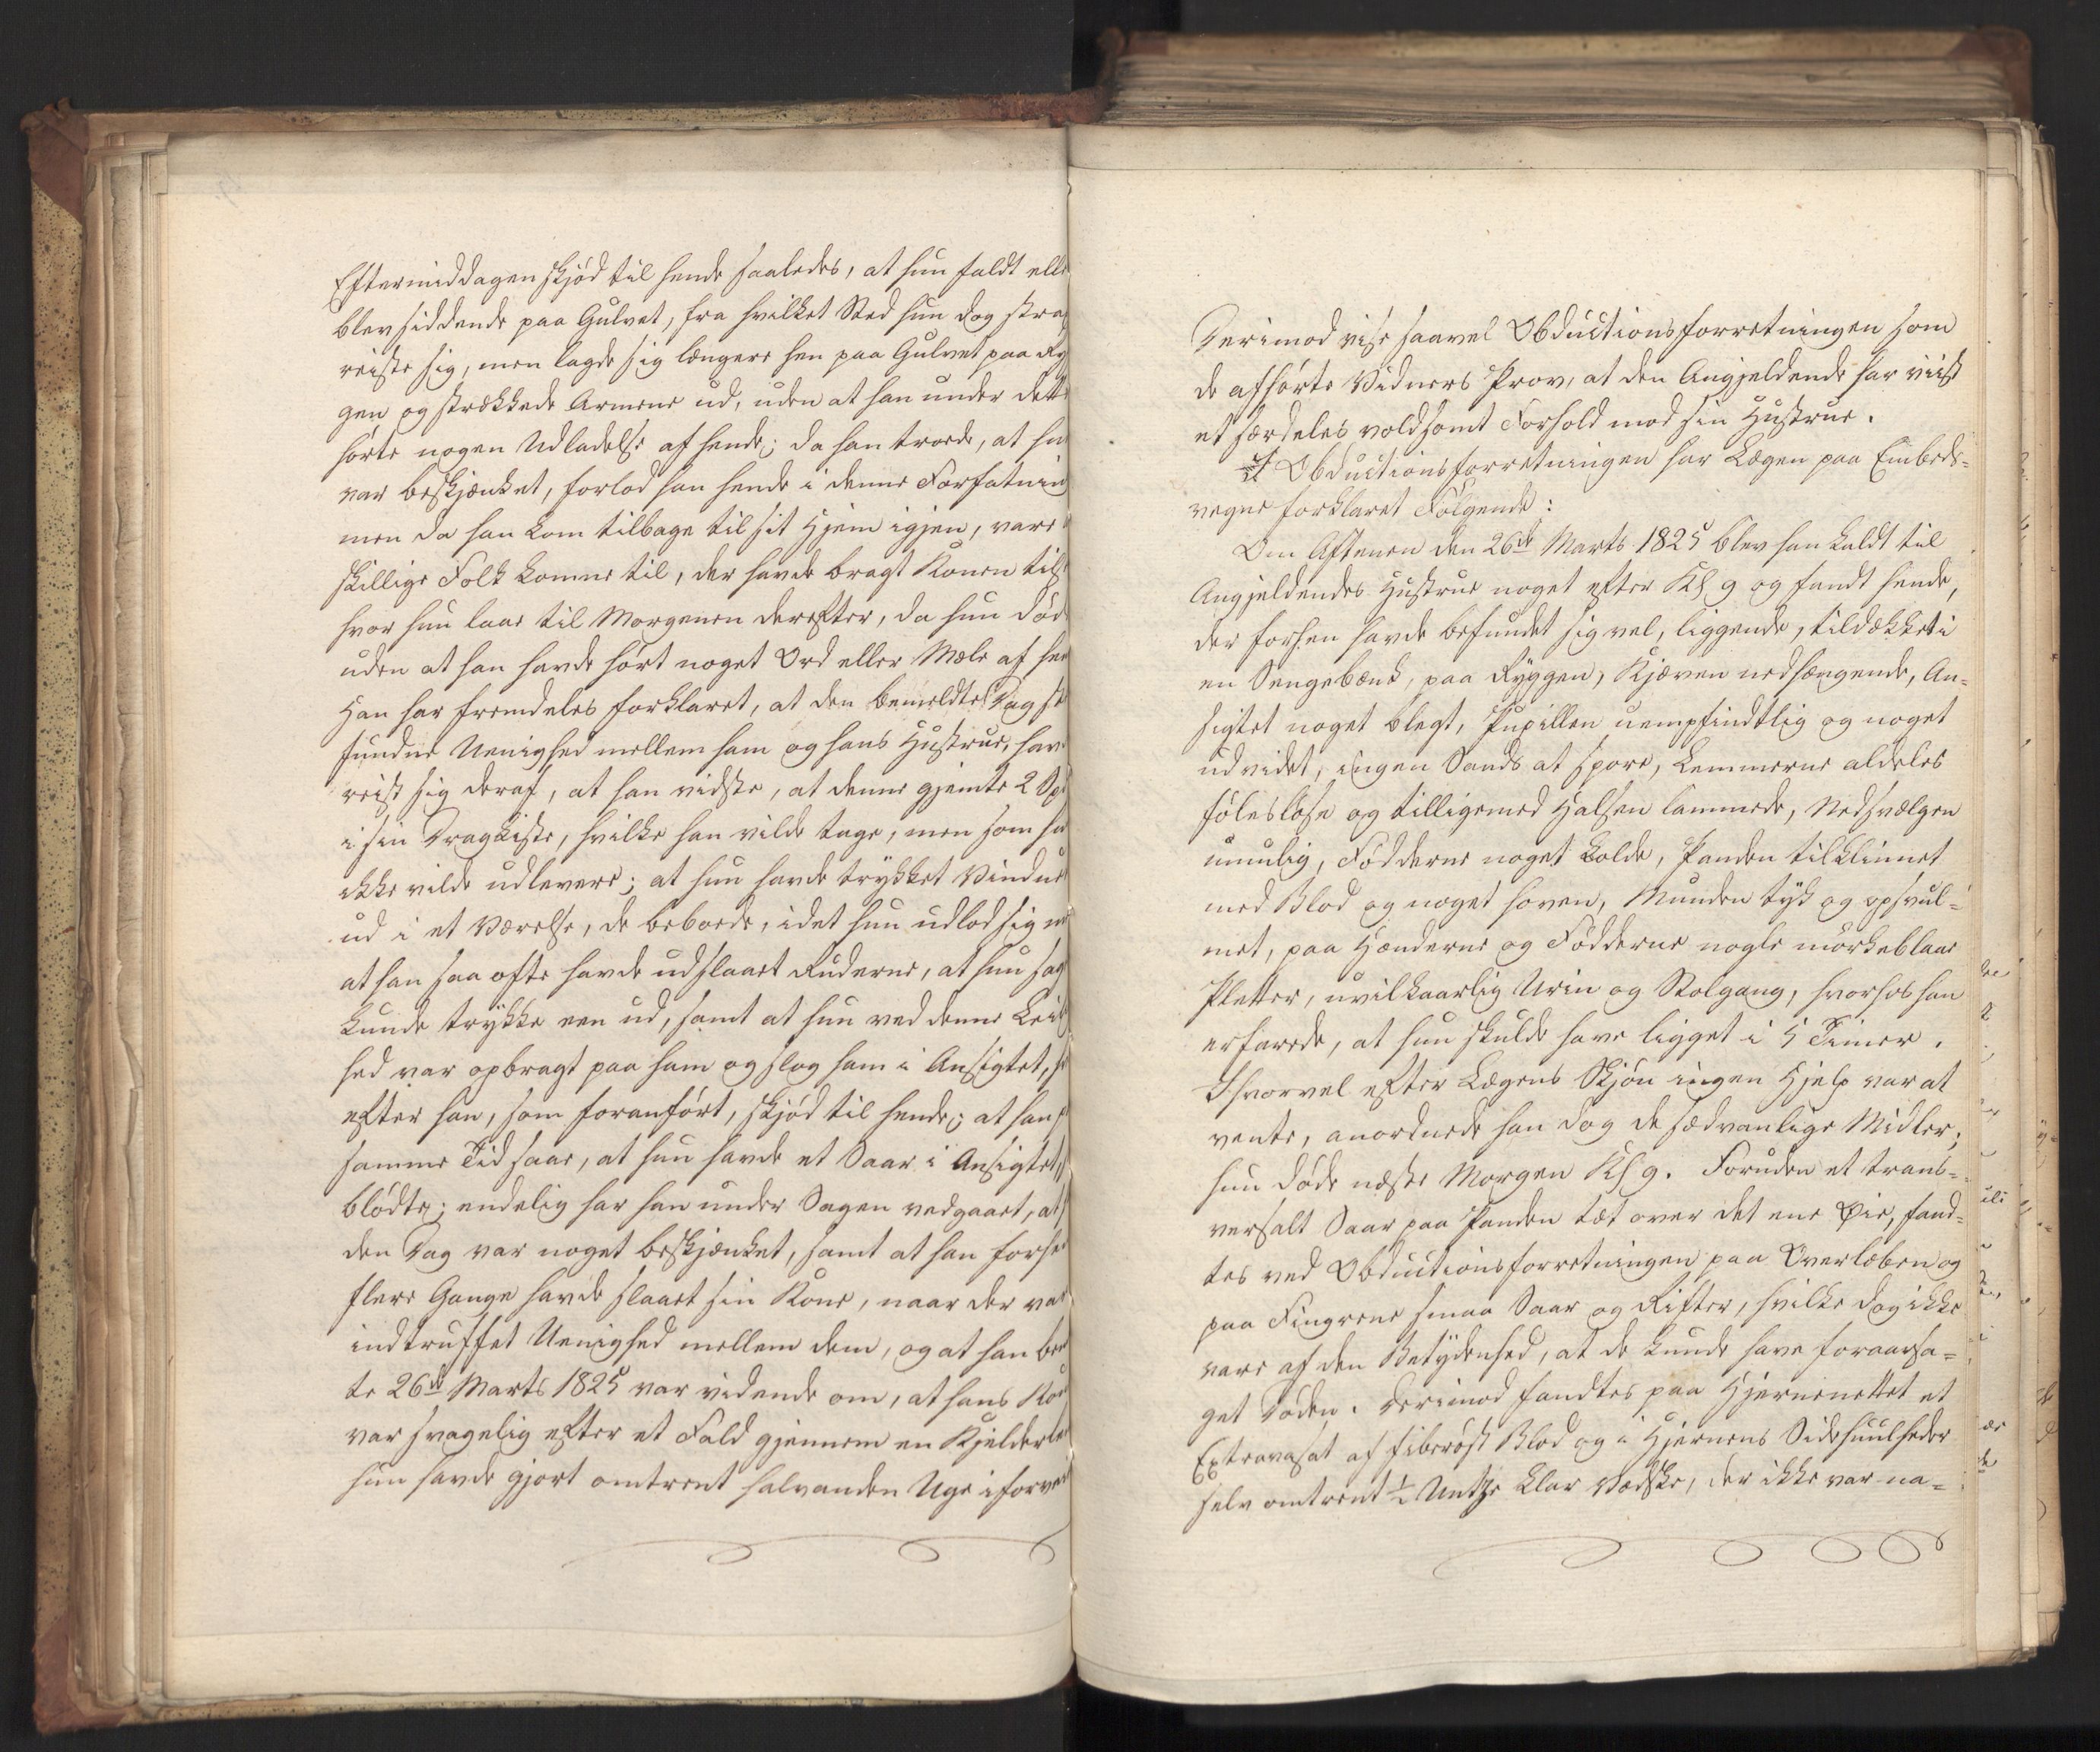 Eftermiddagen skjød til hende saaledes, at hun faldt elle
blev siddende paa Gulvet, fra hvilket Sted hun dog stra
reiste sig, men lagde sig længere hen paa Gulvet paa Ryg
gen og strækkede Armene ud, uden at han under dette
hørte nogen Udladelse af hende; da han troede, at hu
var beskjænket, forlod han hende i denne Forfatnin
men da han kom tilbage til sit Hjem igjen, vare
skillige Folk komne til, der havde bragt Konen til
hvor hun laae til Morgenen derefter, da hun død
uden at han havde hørt noget Ord eller Mæle af hen
Han har fremdeles forklaret, at den bemeldte Dag st
fundne Uenighed mellem ham og hans Hustrue, hav
reist sig deraf, at han vidste, at denne gjemte 2 Sp
i sin Dragkiste, hvilke han vilde tage, men som hu
ikke vilde udlevere; at hun havde trykket Vindue
ud i et Værelse, de beboede, idet hun udlod sig m
at han saa ofte havde udslaaet Ruderne, at hun og
kunde trykke een ud, samt at hun ved denne Leili
hed var opbragt paa ham og slog ham i Ansigtet, h
efter han, som foranført, skjød til hende; at han p
samme Tid saae, at hun havde et Saar i Ansigtet,
blødte; endelig har han under Sagen vedgaaet, at
den Dag var noget beskjænket, samt at han forhe
flere Gange havde slaaet sin Kone, naar der var
indtruffet Uenighed mellem dem, og at han bem
te 26de Marts 1825 var vidende om, at hans Ko
var svagelig efter et Fald gjennem en Kjelderle
hun havde gjort omtrent halvanden Uge iforve
Derimod vise saavel Obductionsforretningen som
de afhørte Vidners Prov, at den Angjeldende har viist
et særdeles voldsomt Forhold mod sin Hustrue.
I Obductionsforretningen har Lægen paa Embeds-
vegne forklaret Følgende:
Om Aftenen den 26de Marts 1825 blev han kaldt til
Angjeldendes Hustrue noget efter Kl 9 og fandt hende,
der forhen havde befundet sig vel, liggende, tildækket i
en Sengebænk, paa Ryggen, Kjæven nedhængende, An-
sigtet noget blegt, Pupillen uempfindtlig og noget
udvidet, ingen Sands at spore, Lemmerne aldeles
følesløse og tilligemed Halsen lammede, Nedsvælgen
umulig, Fødderne noget kolde, Panden tilklinet
med Blod og noget hoven, Munden tyk og opsvul-
met, paa Hænderne og Fødderne nogle mørkeblaae
Pletter, uvilkaarlig Urin og Stolgang, hvorhos han
erfarede, at hun skulde have ligget i 5 Timer.
Ihvorvel efter Lægens Skjøn ingen Hjelp var at
vente, anordnede han dog de sædvanlige Midler;
hun døde næste Morgen Kl 9. Foruden et trans-
versalt Saar paa Panden tæt over det ene Øie, fand-
tes ved Obductionsforretningen paa Overlæben og
paa Fingrene smaa Saar og Rifter, hvilke dog ikke
vare af den Betydenhed, at de kunde have foraarsa-
get Døden. Derimod fandtes paa Hjernenettet et
Extravasat af fiberøst Blod og i Hjernens Sidehuulheder
selv omtrent ½ Untze klar Vædske, der ikke var na-